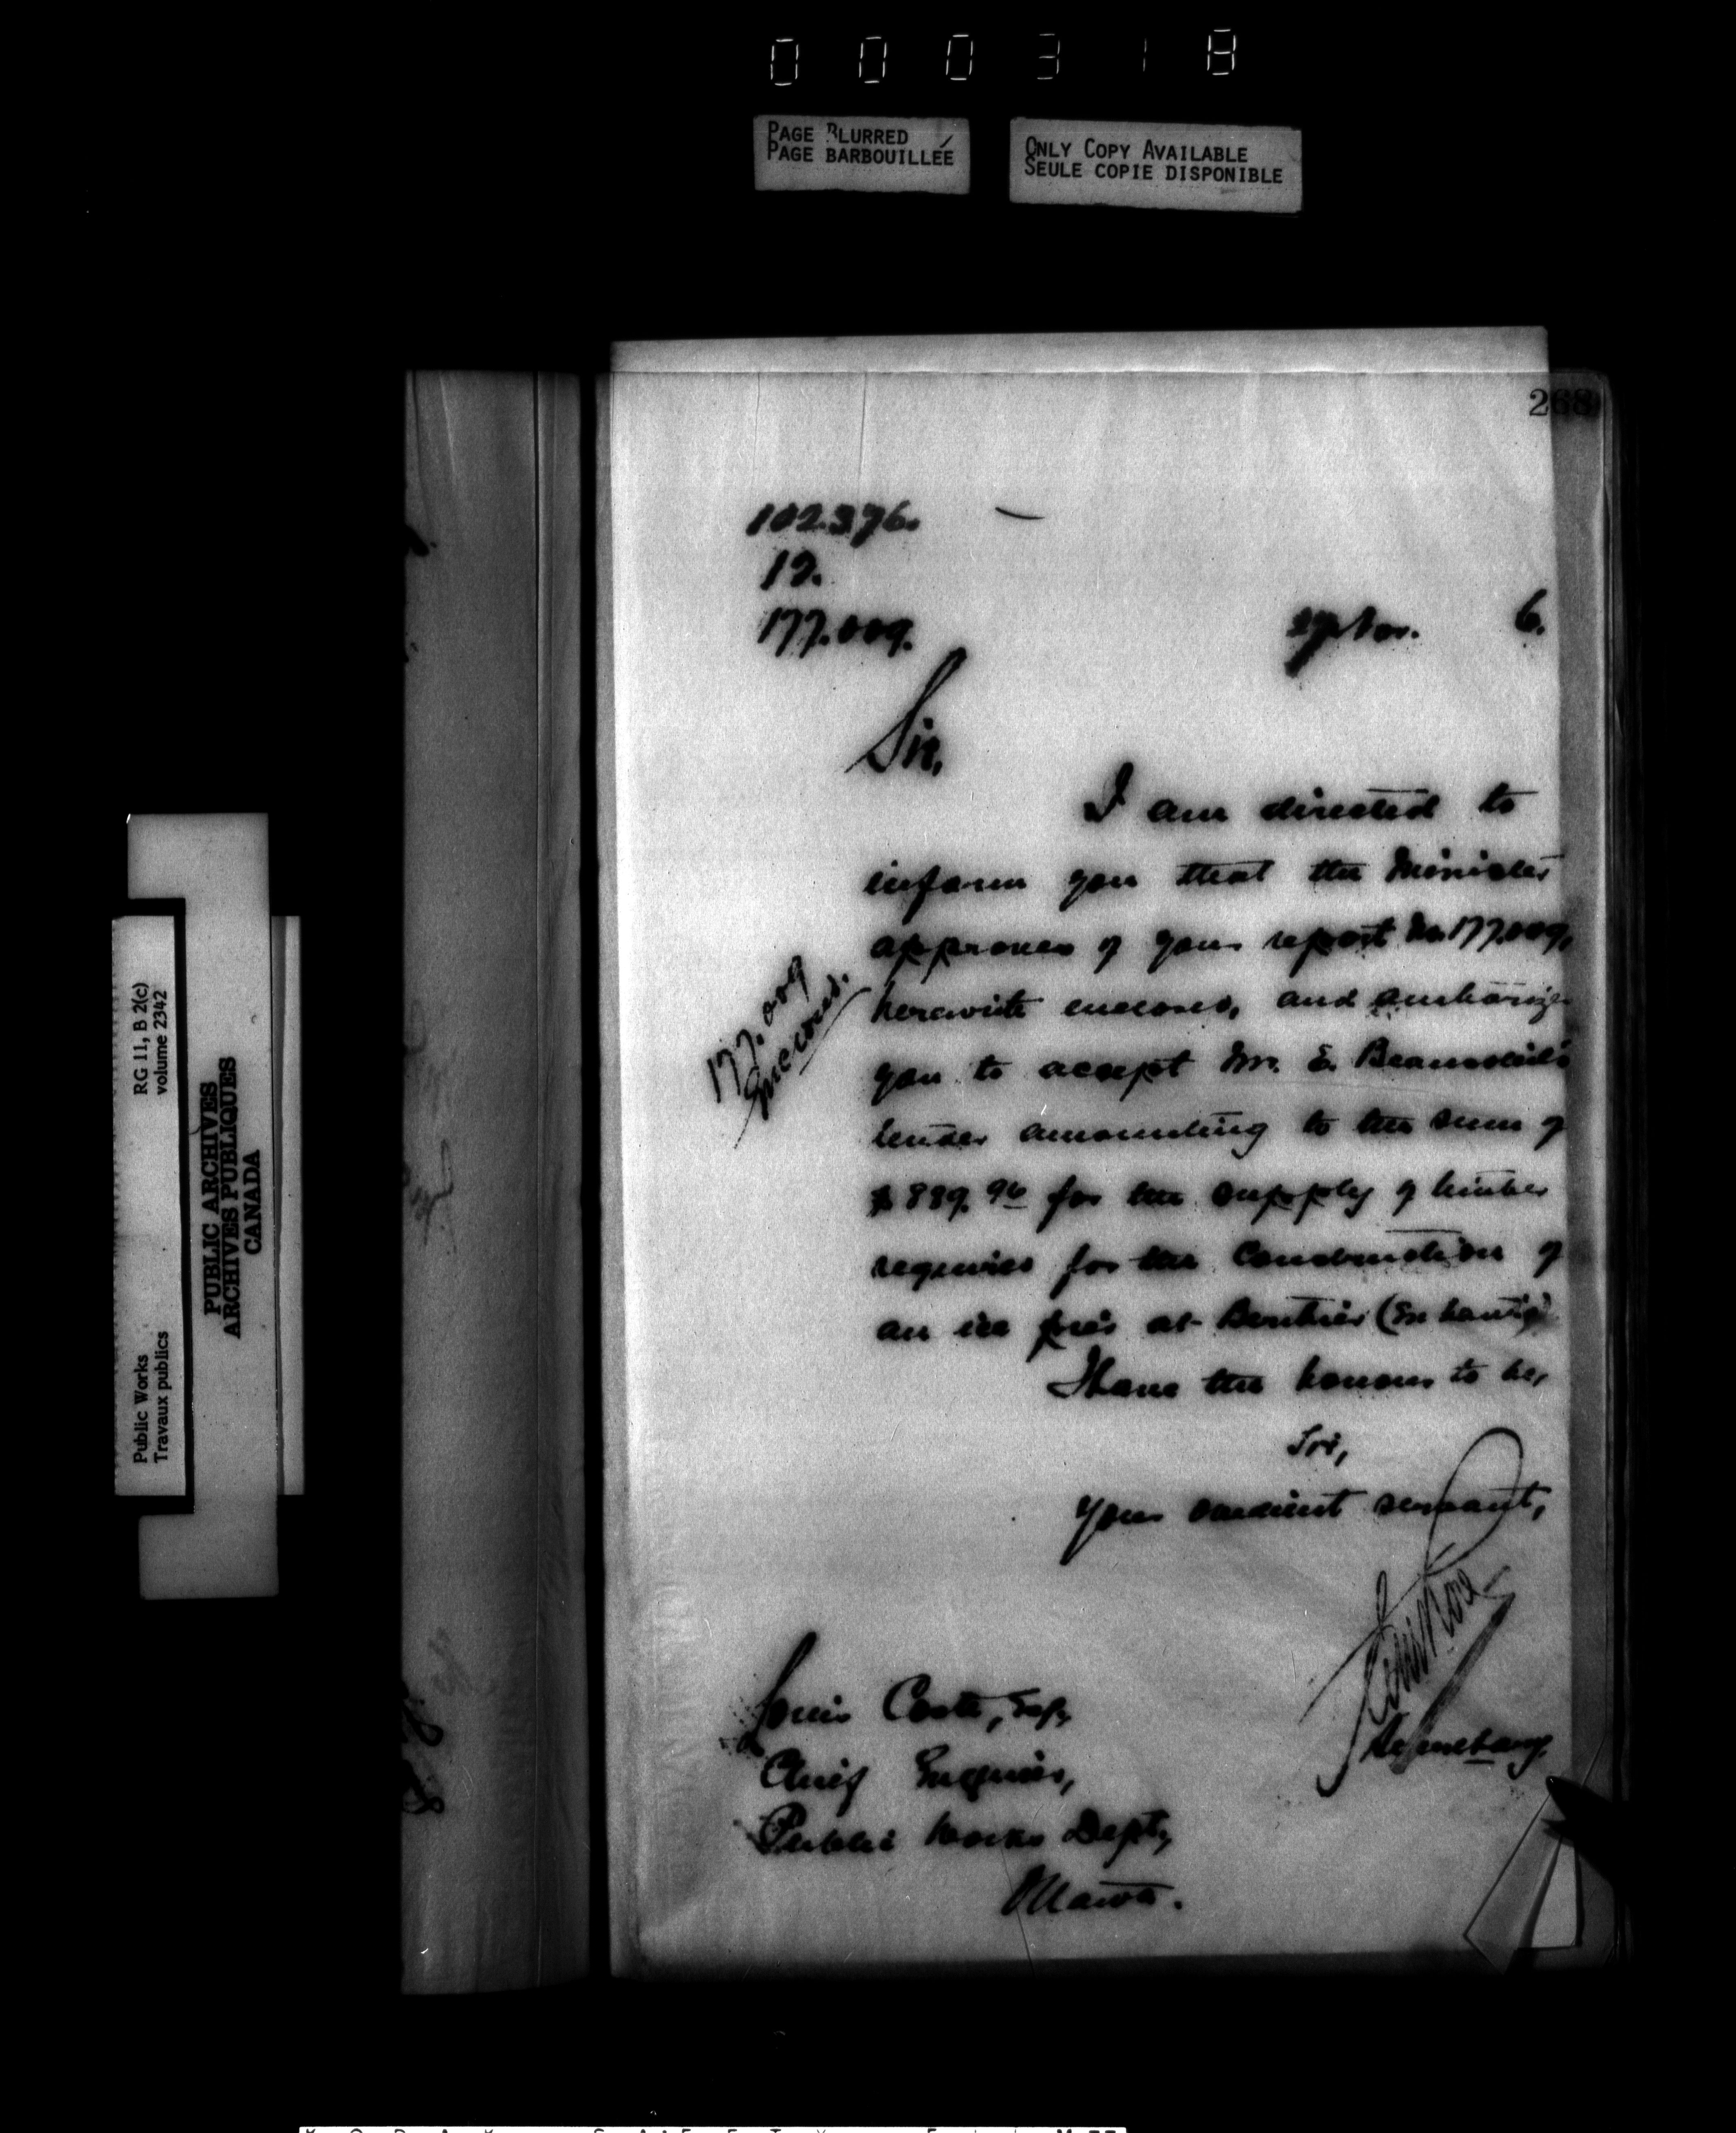 000318
PAGE BLURRED
PAGE BARBOUILLÉE
ONLY COPY AVAILABLE
SEULE COPIE DISPONIBLE
268
102.376.
19.
177.009.
Septbr. 6.
Sir,
I am directed to
inform you that the Minister
approves of your report No. 177.009,
herewith enclosed, and authorizes
you to accept Mr. E. Beausoleil's
tender amounting to the sum of
$889.96 for the supply of timber
required for the Construction of
an ice pier at Berthier (En haut)
I have the honour to be,
Sir,
Your obedient servant,
177.009
Enclosed.
Louis Coste, Esq.
Chief Engineer,
Public Works Dept,
Ottawa.
RG 11, B 2(c)
volume 2342
Public Works
Travaux publics
PUBLIC ARCHIVES
ARCHIVES PUBLIQUES
CANADA